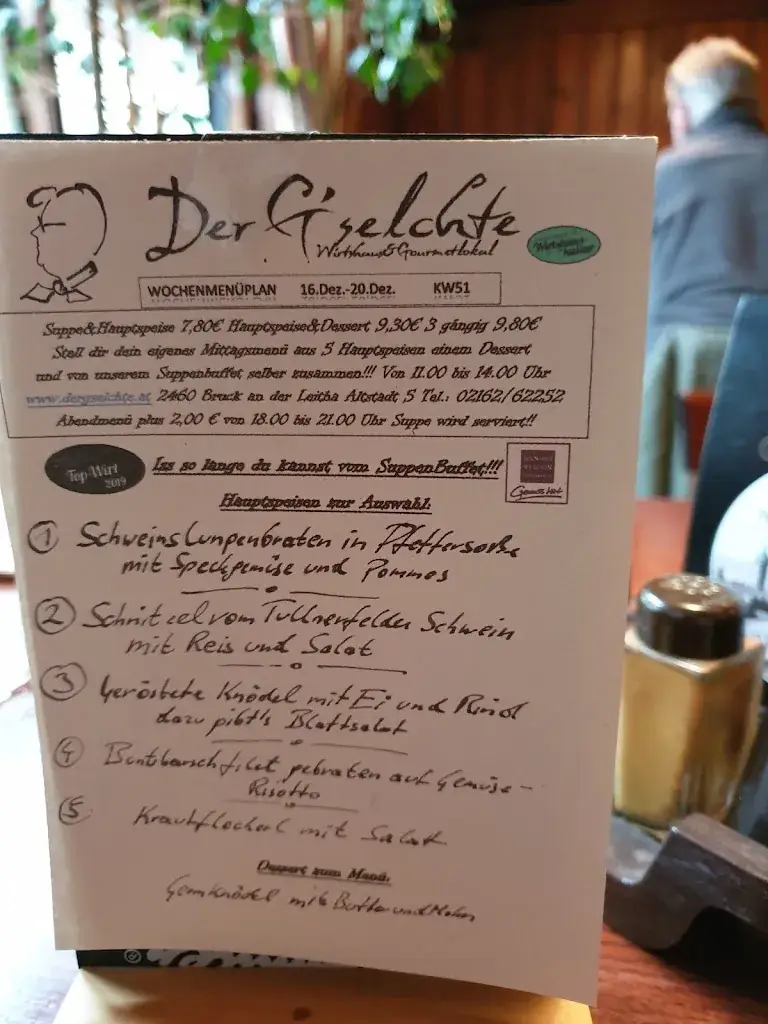 Der G'selchte
Wirtshaus&Gourmetlokal
WOCHENMENÜPLAN 16.Dez.-20.Dez. KW51
Suppe&Hauptspeise 7,80€ Hauptspeise&Dessert 9,30€ 3 gängig 9,80€
Stell dir dein eigenes Mittagsmenü aus 5 Hauptspeisen einem Dessert
und von unserem Suppenbuffet selber zusammen!!! Von 11.00 bis 14.00 Uhr
www.dergselchte.at 2460 Bruck an der Leitha Altstadt 5 Tel.: 02162/62252
Abendmenü plus 2,00 € von 18.00 bis 21.00 Uhr Suppe wird serviert!!
Top-Wirt
2019
Iss so lange du kannst vom SuppenBuffet!!!
Genuss Wirt
Hauptspeisen zur Auswahl:
1 Schweinslungenbraten in Pfeffersoße
mit Speckgemüse und Pommes
2 Schnitzel vom Tullnerfelder Schwein
mit Reis und Salat
3 Geröstete Knödel mit Ei und Rind
dazu gibt's Blattsalat
4 Buntbarschfilet gebraten auf Gemüse-
Risotto
5 Krautfleckerl mit Salat
Dessert zum Menü:
Germknödel mit Butter und Mohn